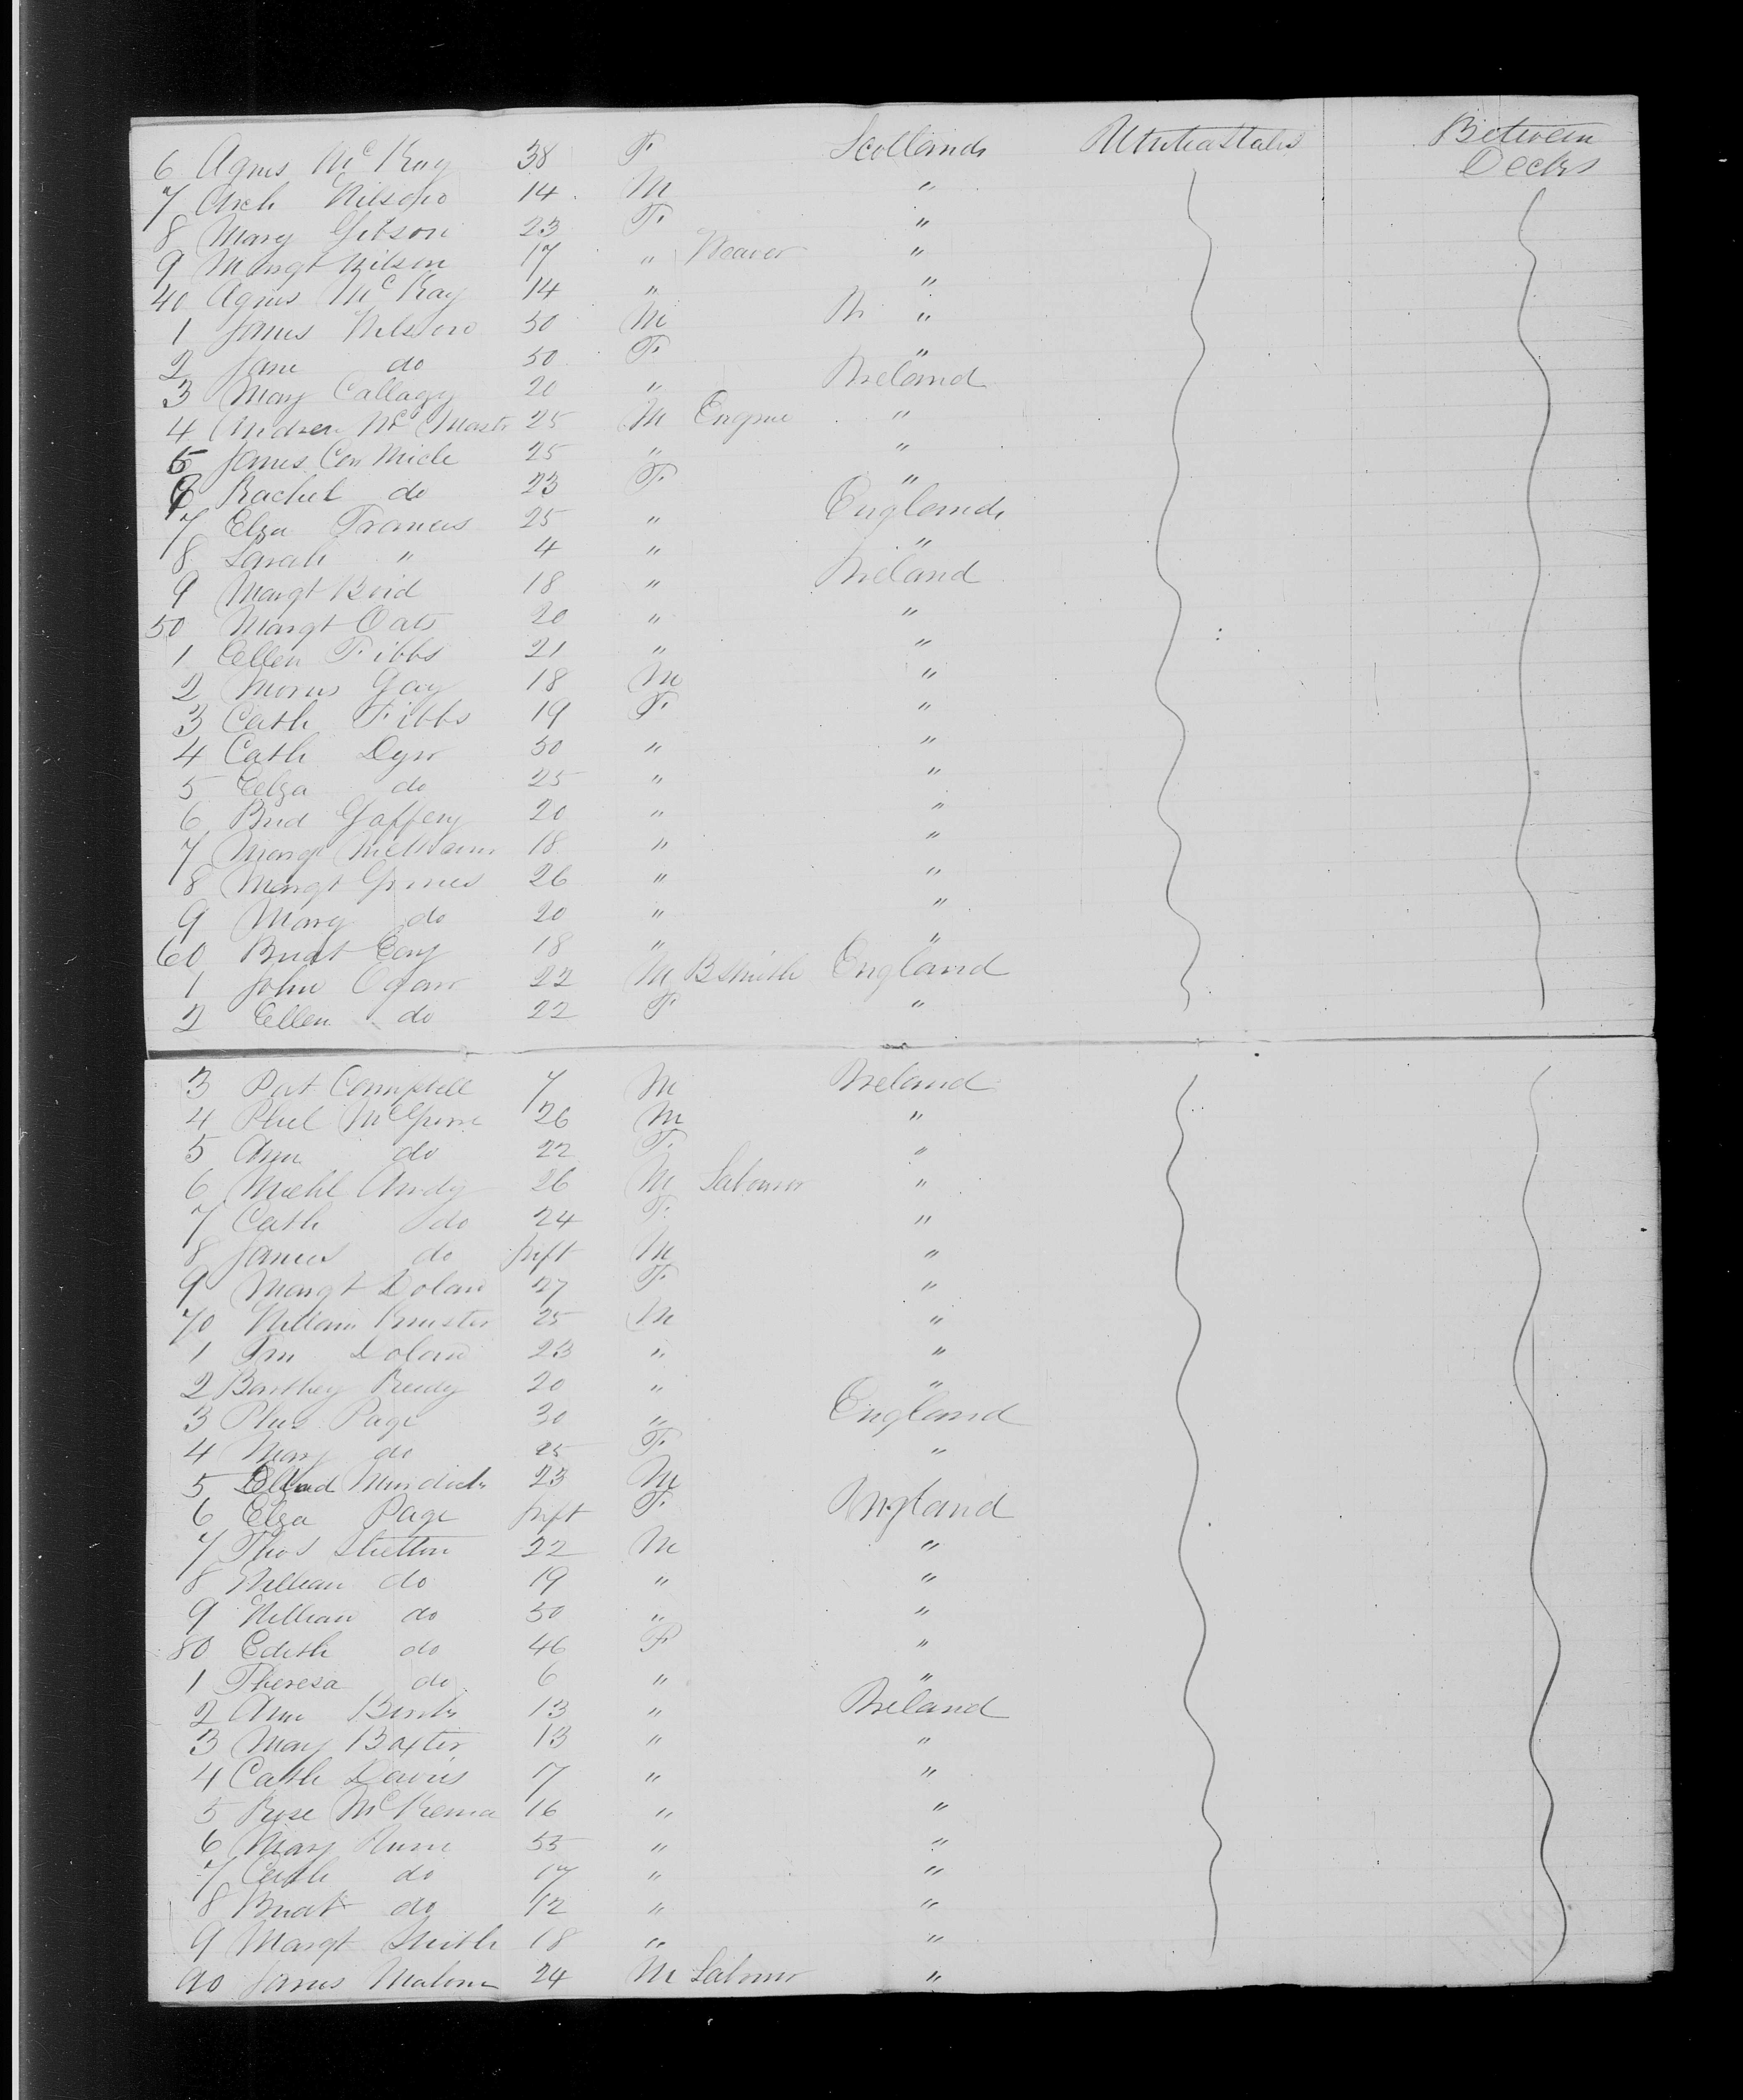 6 Agnes McKay 38 F Scotland United States Between
Decks
7 Arch Wilson 14 M "
8 Mary Gibson 23 F "
9 Margt Wilson 17 " Weaver "
40 Agnes McKay 14 " "
1 James Wilson 50 M "
2 Jane do 50 F "
3 May Callagy 20 " Ireland
4 Andrew McMaste 25 M Engine "
5 James 25 " "
6 Rachel do 23 F "
7 Elza Francis 25 " England
8 Sarah " 4 " "
9 Margt Boid 18 " Ireland
50 Margt Oats 20 " "
1 Ellen Fibbs 21 " "
2 Morris Gay 18 M "
3 Cath Fibbs 19 F "
4 Cath Dyer 50 " "
5 Elza do 25 " "
6 Brid Gaffeny 20 " "
7 Margt 18 " "
8 Margt Grimes 26 " "
9 Mary do 20 " "
60 Bridt 18 " "
1 John 22 M B Smith England
2 Ellen do 22 F "
3 Pat Campbell 7 M Ireland
4 Phil 26 M "
5 Ann do 22 F "
6 Michl 26 M Labourer "
7 Cath do 24 F "
8 James do Inft M "
9 Margt Dolan 27 F "
70 William 25 M "
1 Dolan 23 " "
2 Reedy 20 " "
3 Page 30 " England
4 Mary do 25 F "
5 23 M
6 Elza Page Inft F England
7 Thos Stretton 22 M "
8 William do 19 " "
9 William do 50 " "
80 Edith do 46 F "
1 Theresa do 6 " "
2 Ann 13 " Ireland
3 May Baxter 13 " "
4 Cath Davies 17 " "
5 Rose McKenna 16 " "
6 Mary 55 " "
7 Cath do 17 " "
8 Bridt do 12 " "
9 Margt Smith 18 " "
90 James Malone 24 M Labourer "